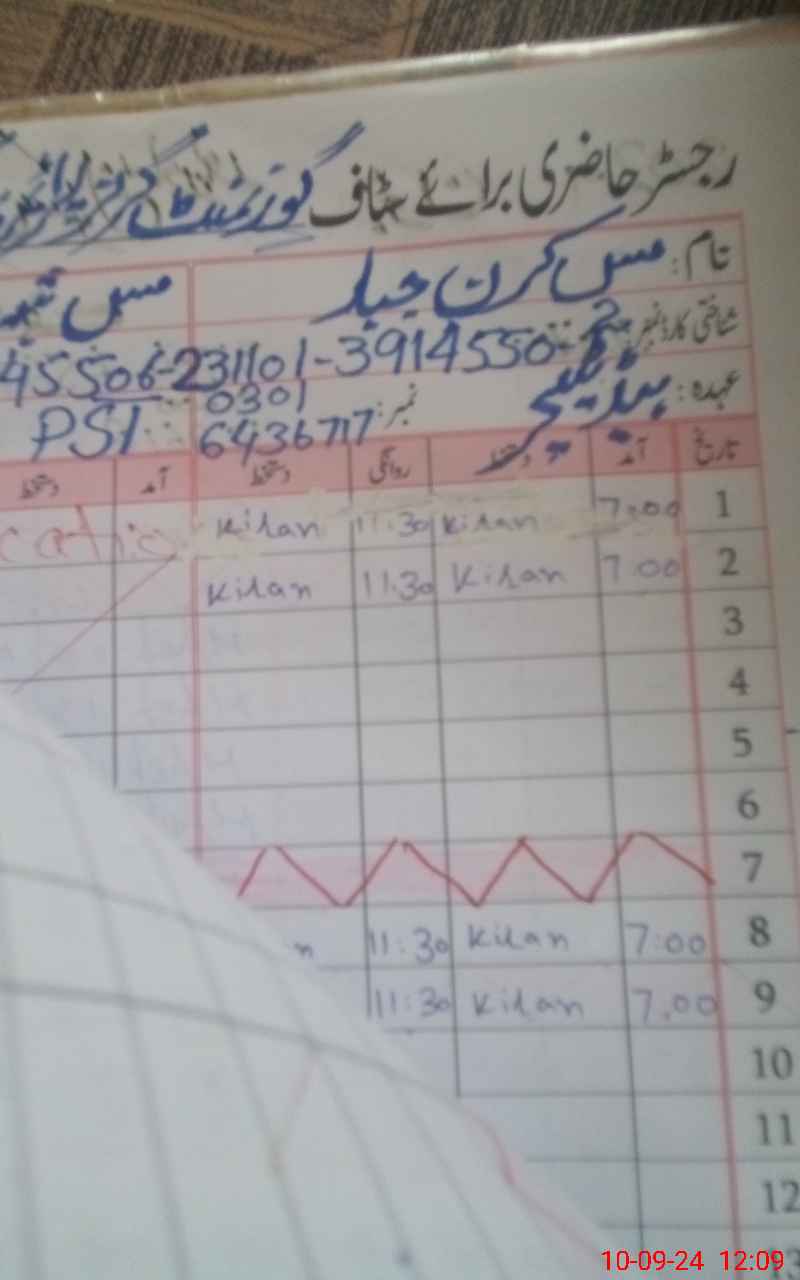 رجسٹر حاضری برائے سٹاف گورنمنٹ گرلز
نام: مس کرن جبار مس
شناختی کارڈ نمبر: 45506-231101-3914550
عہدہ: نمبر: 0301 6436717 PST
تاریخ آمد دستخط روانگی دستخط آمد دستخط
1 7:00 Kiran 11:30 Kiran
2 7:00 Kiran 11:30 Kiran
3
4
5
6
7
8 7:00 Kiran 11:30
9 7:00 Kiran 11:30
10
11
12
13
10-09-24 12:09